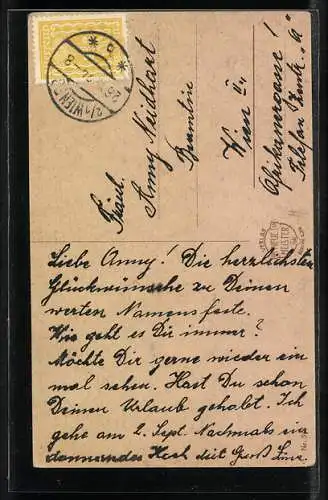 Fräul.
Anny Neidhart
Beamtin
Wien II.
Afrikanergasse 1
Telefon Zentr. "a"
Liebe Anny! Die herzlichsten
Glückwünsche zu Deinen
werten Namensfeste.
Wie geht es Dir immer?
Möchte Dir gerne wieder ein
mal sehen. Hast Du schon
Deinen Urlaub gehabt. Ich
gehe am 2. Sept. Nochmals ein
donnerndes Hoch mit Gruß